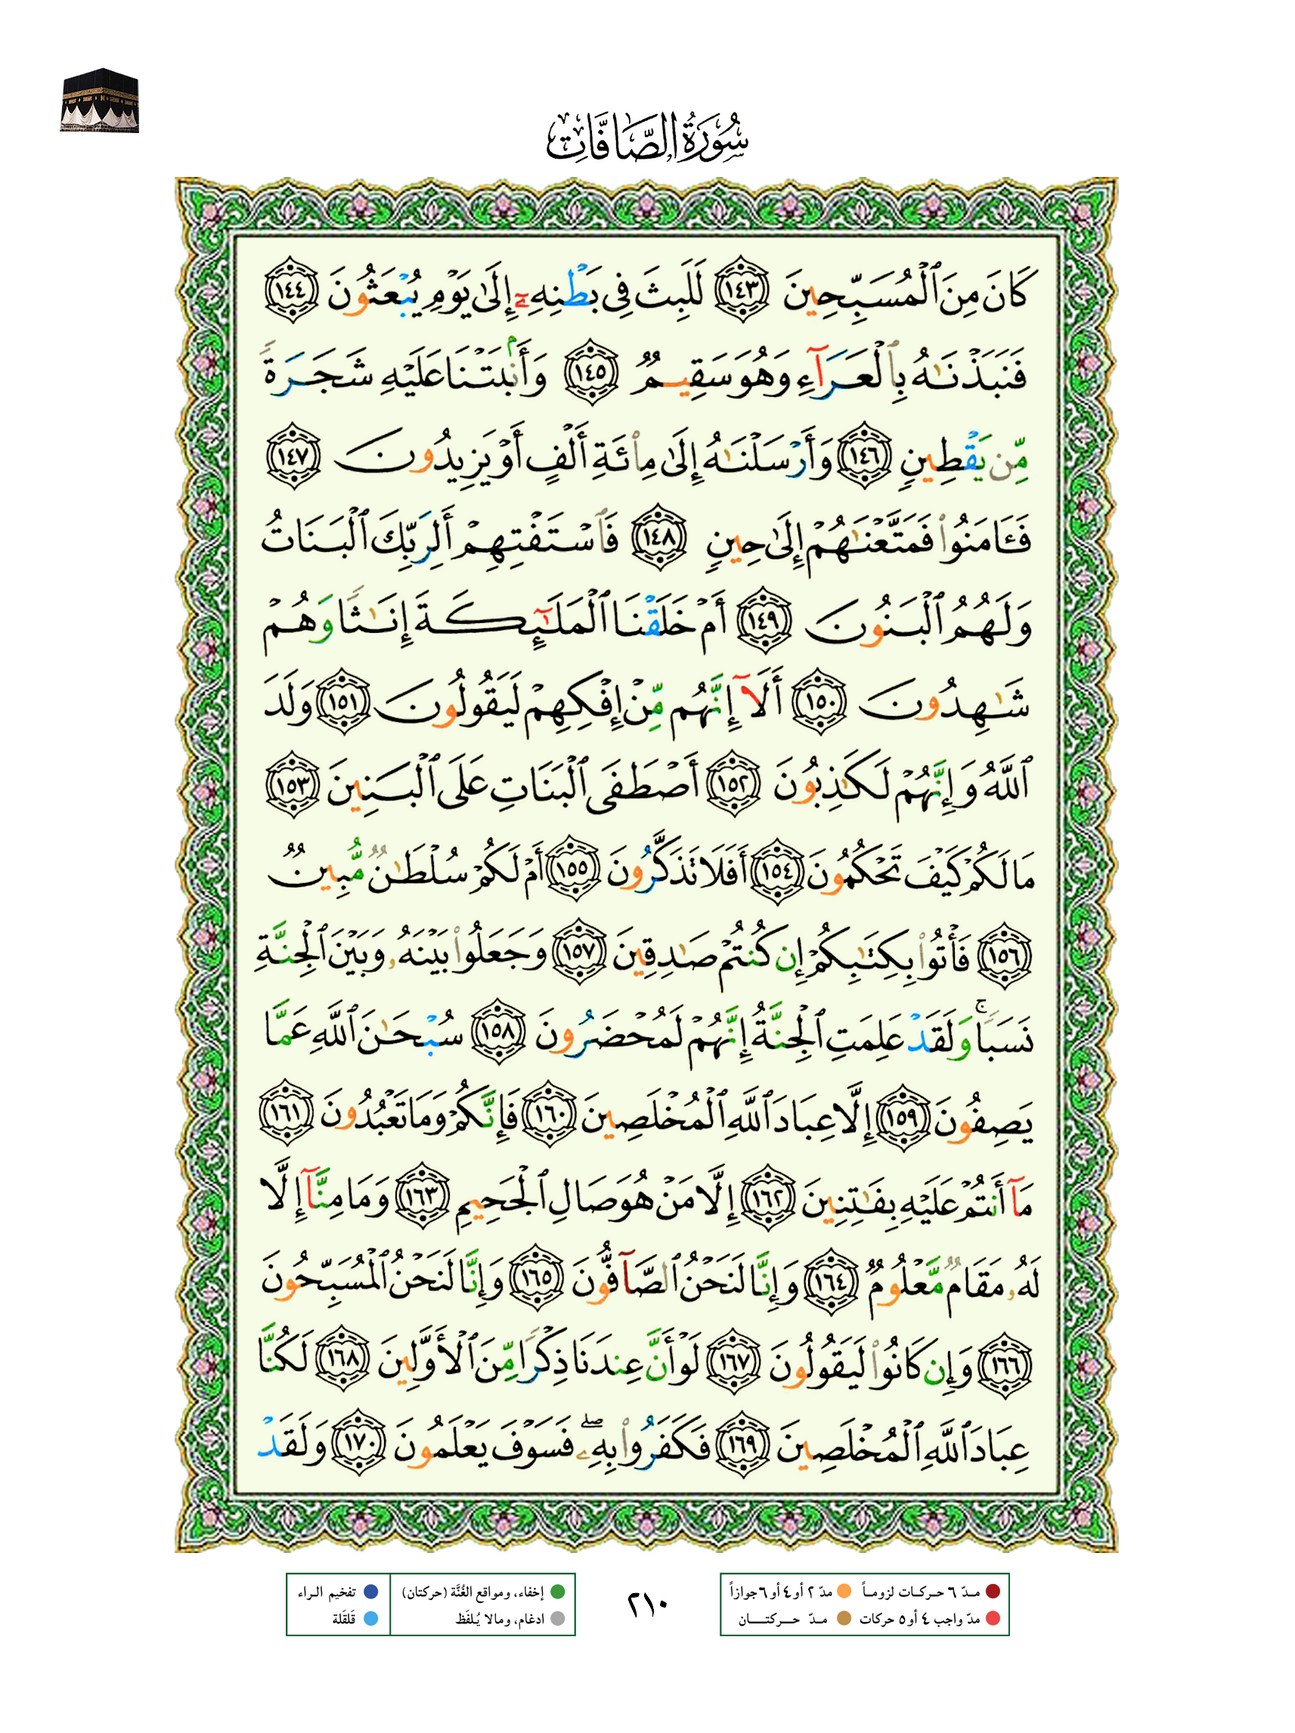 سُورَةُ الصَّافَّاتِ
كَانَ مِنَ ٱلْمُسَبِّحِينَ ١٤٣ لَلَبِثَ فِى بَطْنِهِۦٓ إِلَىٰ يَوْمِ يُبْعَثُونَ ١٤٤
فَنَبَذْنَـٰهُ بِٱلْعَرَآءِ وَهُوَ سَقِيمٌ ١٤٥ وَأَنۢبَتْنَا عَلَيْهِ شَجَرَةً
مِّن يَقْطِينٍ ١٤٦ وَأَرْسَلْنَـٰهُ إِلَىٰ مِا۟ئَةِ أَلْفٍ أَوْ يَزِيدُونَ ١٤٧
فَـَٔامَنُوا۟ فَمَتَّعْنَـٰهُمْ إِلَىٰ حِينٍ ١٤٨ فَٱسْتَفْتِهِمْ أَلِرَبِّكَ ٱلْبَنَاتُ
وَلَهُمُ ٱلْبَنُونَ ١٤٩ أَمْ خَلَقْنَا ٱلْمَلَـٰٓئِكَةَ إِنَـٰثًا وَهُمْ
شَـٰهِدُونَ ١٥٠ أَلَآ إِنَّهُم مِّنْ إِفْكِهِمْ لَيَقُولُونَ ١٥١ وَلَدَ
ٱللَّهُ وَإِنَّهُمْ لَكَـٰذِبُونَ ١٥٢ أَصْطَفَى ٱلْبَنَاتِ عَلَى ٱلْبَنِينَ ١٥٣
مَا لَكُمْ كَيْفَ تَحْكُمُونَ ١٥٤ أَفَلَا تَذَكَّرُونَ ١٥٥ أَمْ لَكُمْ سُلْطَـٰنٌ مُّبِينٌ
١٥٦ فَأْتُوا۟ بِكِتَـٰبِكُمْ إِن كُنتُمْ صَـٰدِقِينَ ١٥٧ وَجَعَلُوا۟ بَيْنَهُۥ وَبَيْنَ ٱلْجِنَّةِ
نَسَبًا ۚ وَلَقَدْ عَلِمَتِ ٱلْجِنَّةُ إِنَّهُمْ لَمُحْضَرُونَ ١٥٨ سُبْحَـٰنَ ٱللَّهِ عَمَّا
يَصِفُونَ ١٥٩ إِلَّا عِبَادَ ٱللَّهِ ٱلْمُخْلَصِينَ ١٦٠ فَإِنَّكُمْ وَمَا تَعْبُدُونَ ١٦١
مَآ أَنتُمْ عَلَيْهِ بِفَـٰتِنِينَ ١٦٢ إِلَّا مَنْ هُوَ صَالِ ٱلْجَحِيمِ ١٦٣ وَمَا مِنَّآ إِلَّا
لَهُۥ مَقَامٌ مَّعْلُومٌ ١٦٤ وَإِنَّا لَنَحْنُ ٱلصَّآفُّونَ ١٦٥ وَإِنَّا لَنَحْنُ ٱلْمُسَبِّحُونَ
١٦٦ وَإِن كَانُوا۟ لَيَقُولُونَ ١٦٧ لَوْ أَنَّ عِندَنَا ذِكْرًا مِّنَ ٱلْأَوَّلِينَ ١٦٨ لَكُنَّا
عِبَادَ ٱللَّهِ ٱلْمُخْلَصِينَ ١٦٩ فَكَفَرُوا۟ بِهِۦ ۖ فَسَوْفَ يَعْلَمُونَ ١٧٠ وَلَقَدْ
مـدّ ٦ حـركـات لزومـاً مدّ ٢ أو ٤ أو ٦ جوازاً
مدّ واجب ٤ أو ٥ حركات مـدّ حـــركتـــان
٢١٠
إخفاء، ومواقع الغُنَّة (حركتان) تفخيم الـراء
ادغام، ومالا يُـلفَظ قلقلة